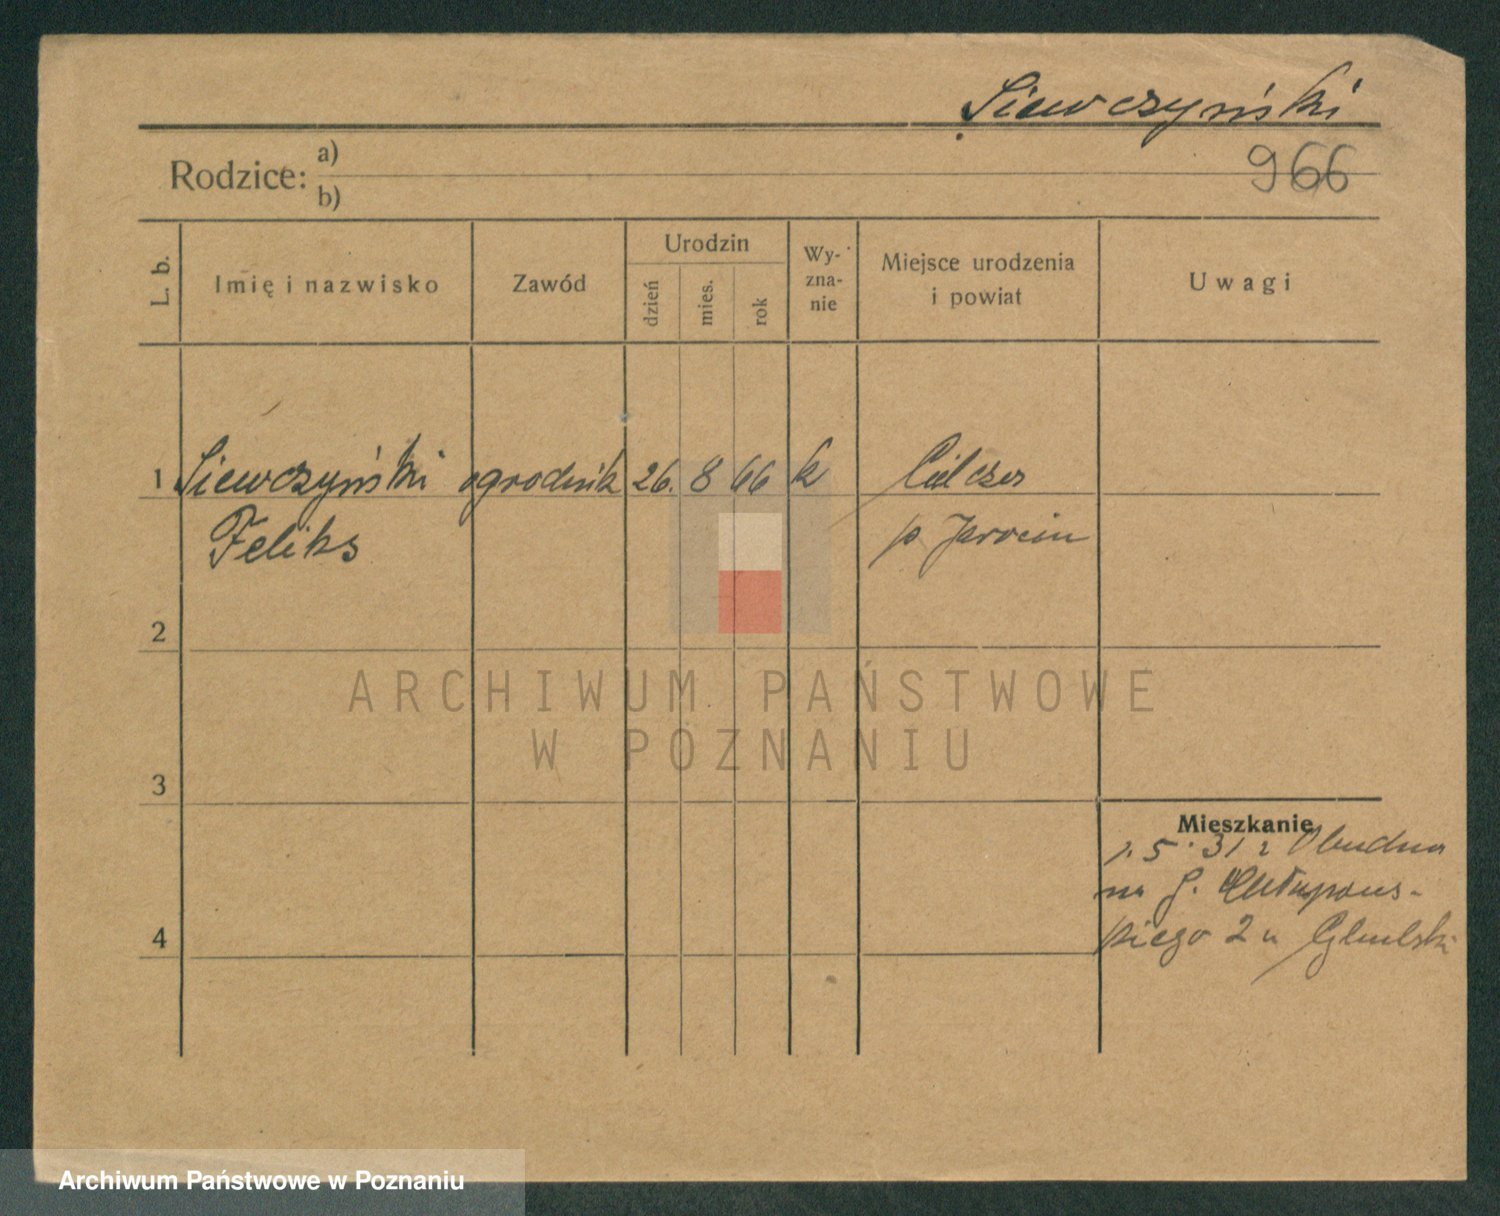 Siewczyński
966
Rodzice: a)
b)
L. b.
Imię i nazwisko
Zawód
Urodzin
dzień
mies.
rok
Wy-
zna-
nie
Miejsce urodzenia
i powiat
Uwagi
1 Siewczyński ogrodnik 26. 8 66 k Cielcza
Feliks p. Jarocin
2
3
4
Mieszkanie
5. 31 z
na
skiego 2 u
ARCHIWUM PAŃSTWOWE
W POZNANIU
Archiwum Państwowe w Poznaniu